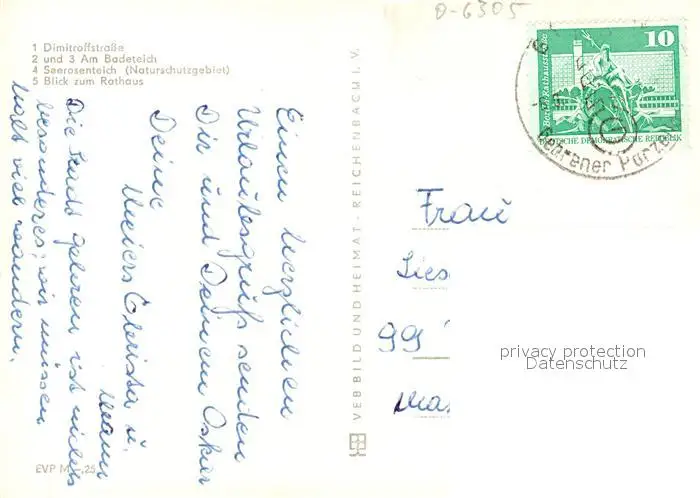 1 Dimitroffstraße
2 und 3 Am Badeteich
4 Seerosenteich (Naturschutzgebiet)
5 Blick zum Rathaus
Einen herzlichen
Urlaubsgruß senden
Dir und Deinem Oskar
Deine
Meiers Christa u.
Mann
Die Stadt gehren ist nichts
besonderes, wir müssen
halt viel wandern.
EVP M -,25
VEB BILD UND HEIMAT · REICHENBACH I. V.
O-6305
10
Berlin, Rathausstraße
DEUTSCHE DEMOKRATISCHE REPUBLIK
Gehrener Porze
Frau
Lies
99
privacy protection
Datenschutz